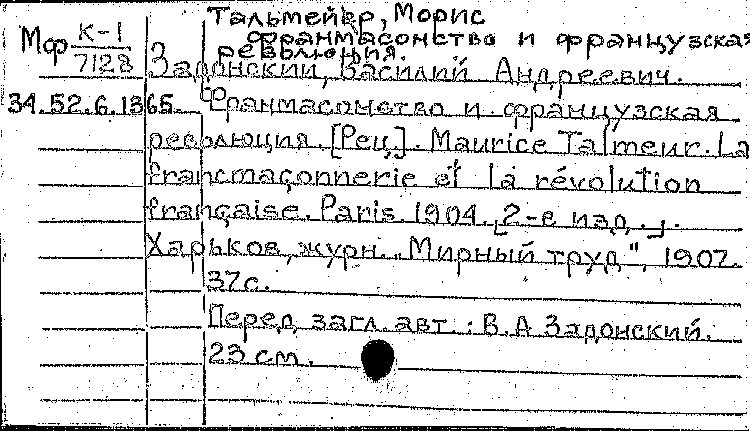 Тальмейер, Морис
франмасонство и французская
революция.
Мф К-1
7128
Задонский, Василий Андреевич.
34.52.6.1365. Франмасонство и французская
революция. [Рец.]. Maurice Talmeur. La
francmaçonnerie et la révolution
française. Paris. 1904. [2-е изд.].
Харьков, журн. "Мирный труд", 1907.
37с.
Перед загл. авт.: В.А Задонский.
23 см.